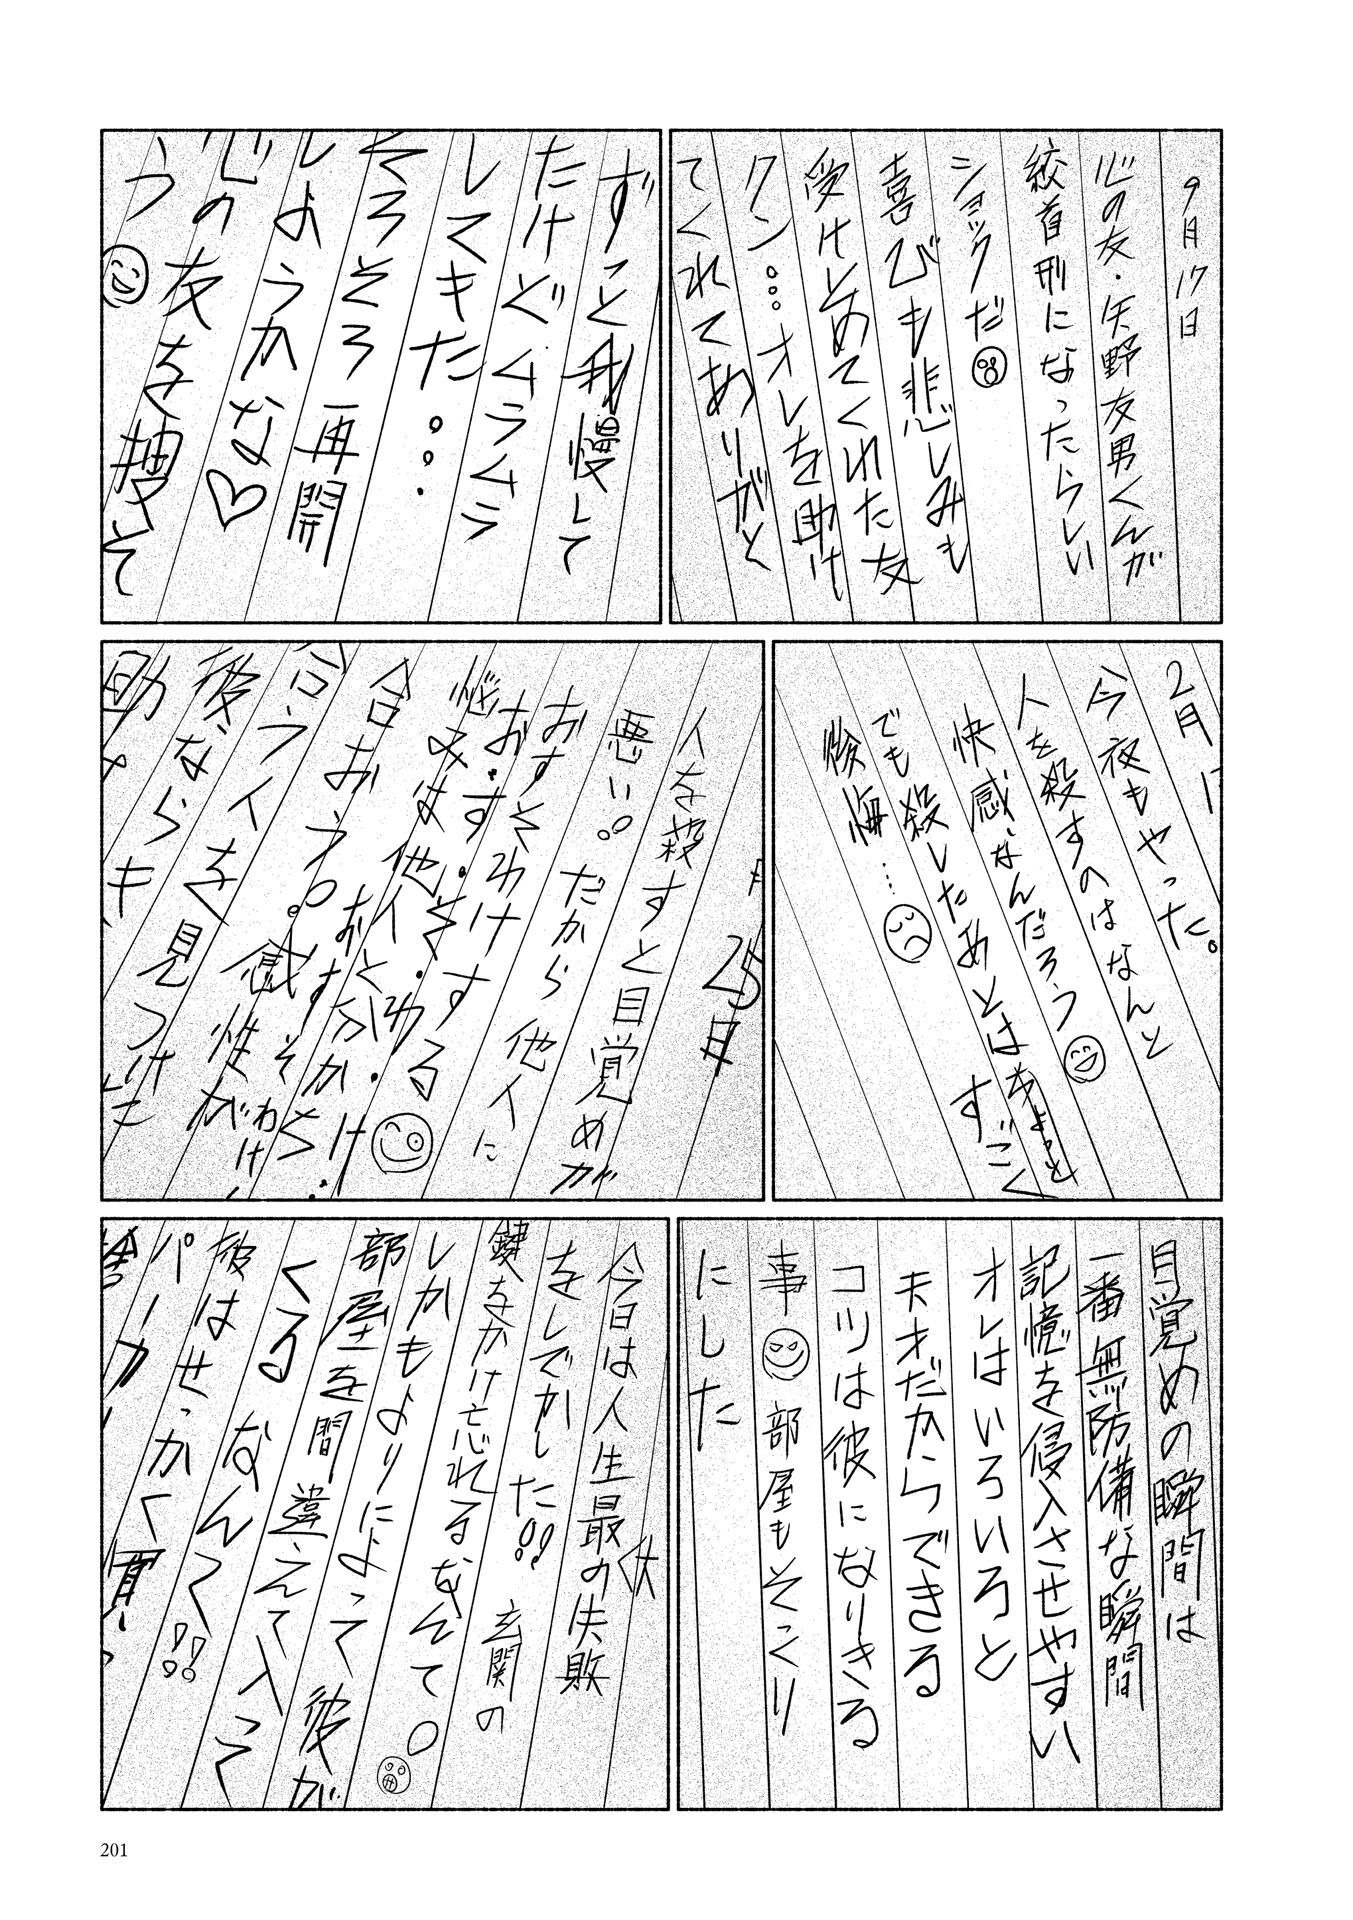 9月17日
心の友・矢野友男くんが
絞首刑になったらしい
ショックだ
喜びも悲しみも
受けとめてくれた友
クン…オレを助け
てくれてありがと
ずっと我慢して
たけどムラムラ
してきた…
そろそろ再開
しようかな♡
心の友を捜そ
う
2月1
今夜もやった。
人を殺すのはなんと
快感なんだろう
でも殺したあとはちょっと
すごく
後悔…
月25日
人を殺すと目覚めが
悪い!!だから他人に
おすそわけする
お・す・そ・わ・け・
悩みは他人と分かち
合おう。おすそわけ!
合う。感性が
合うヤイを見つけた
彼ならも
助け
目覚めの瞬間は
一番無防備な瞬間
記憶を侵入させやすい
オレはいろいろと
天才だからできる
コツは彼になりきる
事 部屋もそっくり
にした
今日は人生最大の失敗
をしでかした!!玄関の
鍵をかけ忘れるなんて。
しかもよりによって彼が
部屋を間違えて入って
くるなんて!!
彼はせっかく買っ
パーカー
201